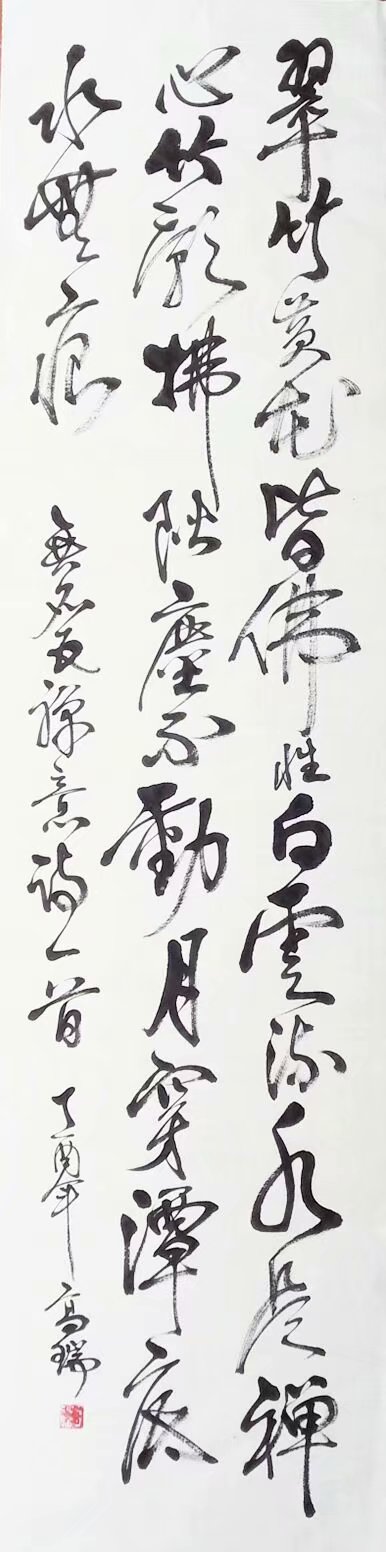 翠竹黄花皆佛性白雲流水是禅
心竹影拂階塵不動月穿潭底
水無痕
無名氏禅意詩一首 丁酉年 高瑞